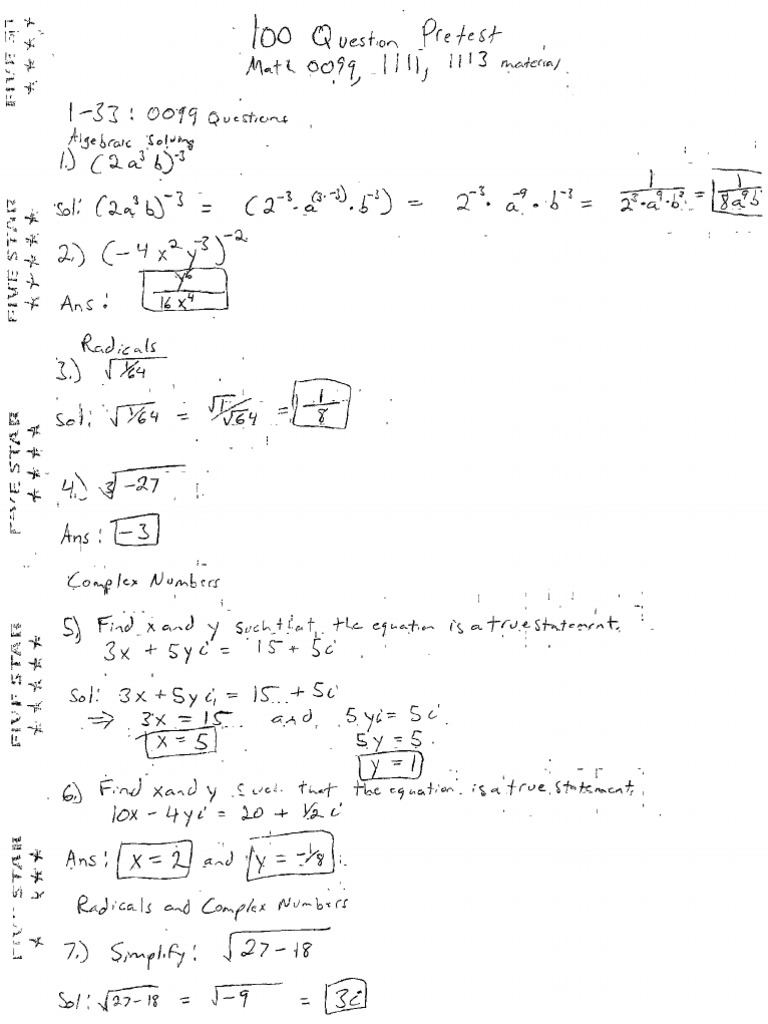 100 Question Pretest
Math 0099, 1111, 1113 material
1-33: 0099 Questions
Algebraic Solving
1.) (2a³b)⁻³
Sol: (2a³b)⁻³ = (2⁻³·a⁽³·⁻³⁾·b⁻³) = 2⁻³·a⁻⁹·b⁻³ = 1/(2³·a⁹·b³) = 1/(8a⁹b
2.) (-4x²y⁻³)⁻²
Ans: y⁶/16x⁴
Radicals
3.) √1/64
Sol: √1/64 = √1/√64 = 1/8
4.) ³√-27
Ans: -3
Complex Numbers
5.) Find x and y such that the equation is a true statement.
3x + 5yi = 15 + 5i
Sol: 3x + 5yi = 15 + 5i
⇒ 3x = 15 and 5yi = 5i
x = 5 5y = 5
y = 1
6.) Find x and y such that the equation is a true statement.
10x - 4yi = 20 + 1/2 i
Ans: x = 2 and y = -1/8
Radicals and Complex Numbers
7.) Simplify: √27-18
Sol: √27-18 = √-9 = 3i
FIVE STAR
FIVE STAR
FIVE STAR
FIVE STAR